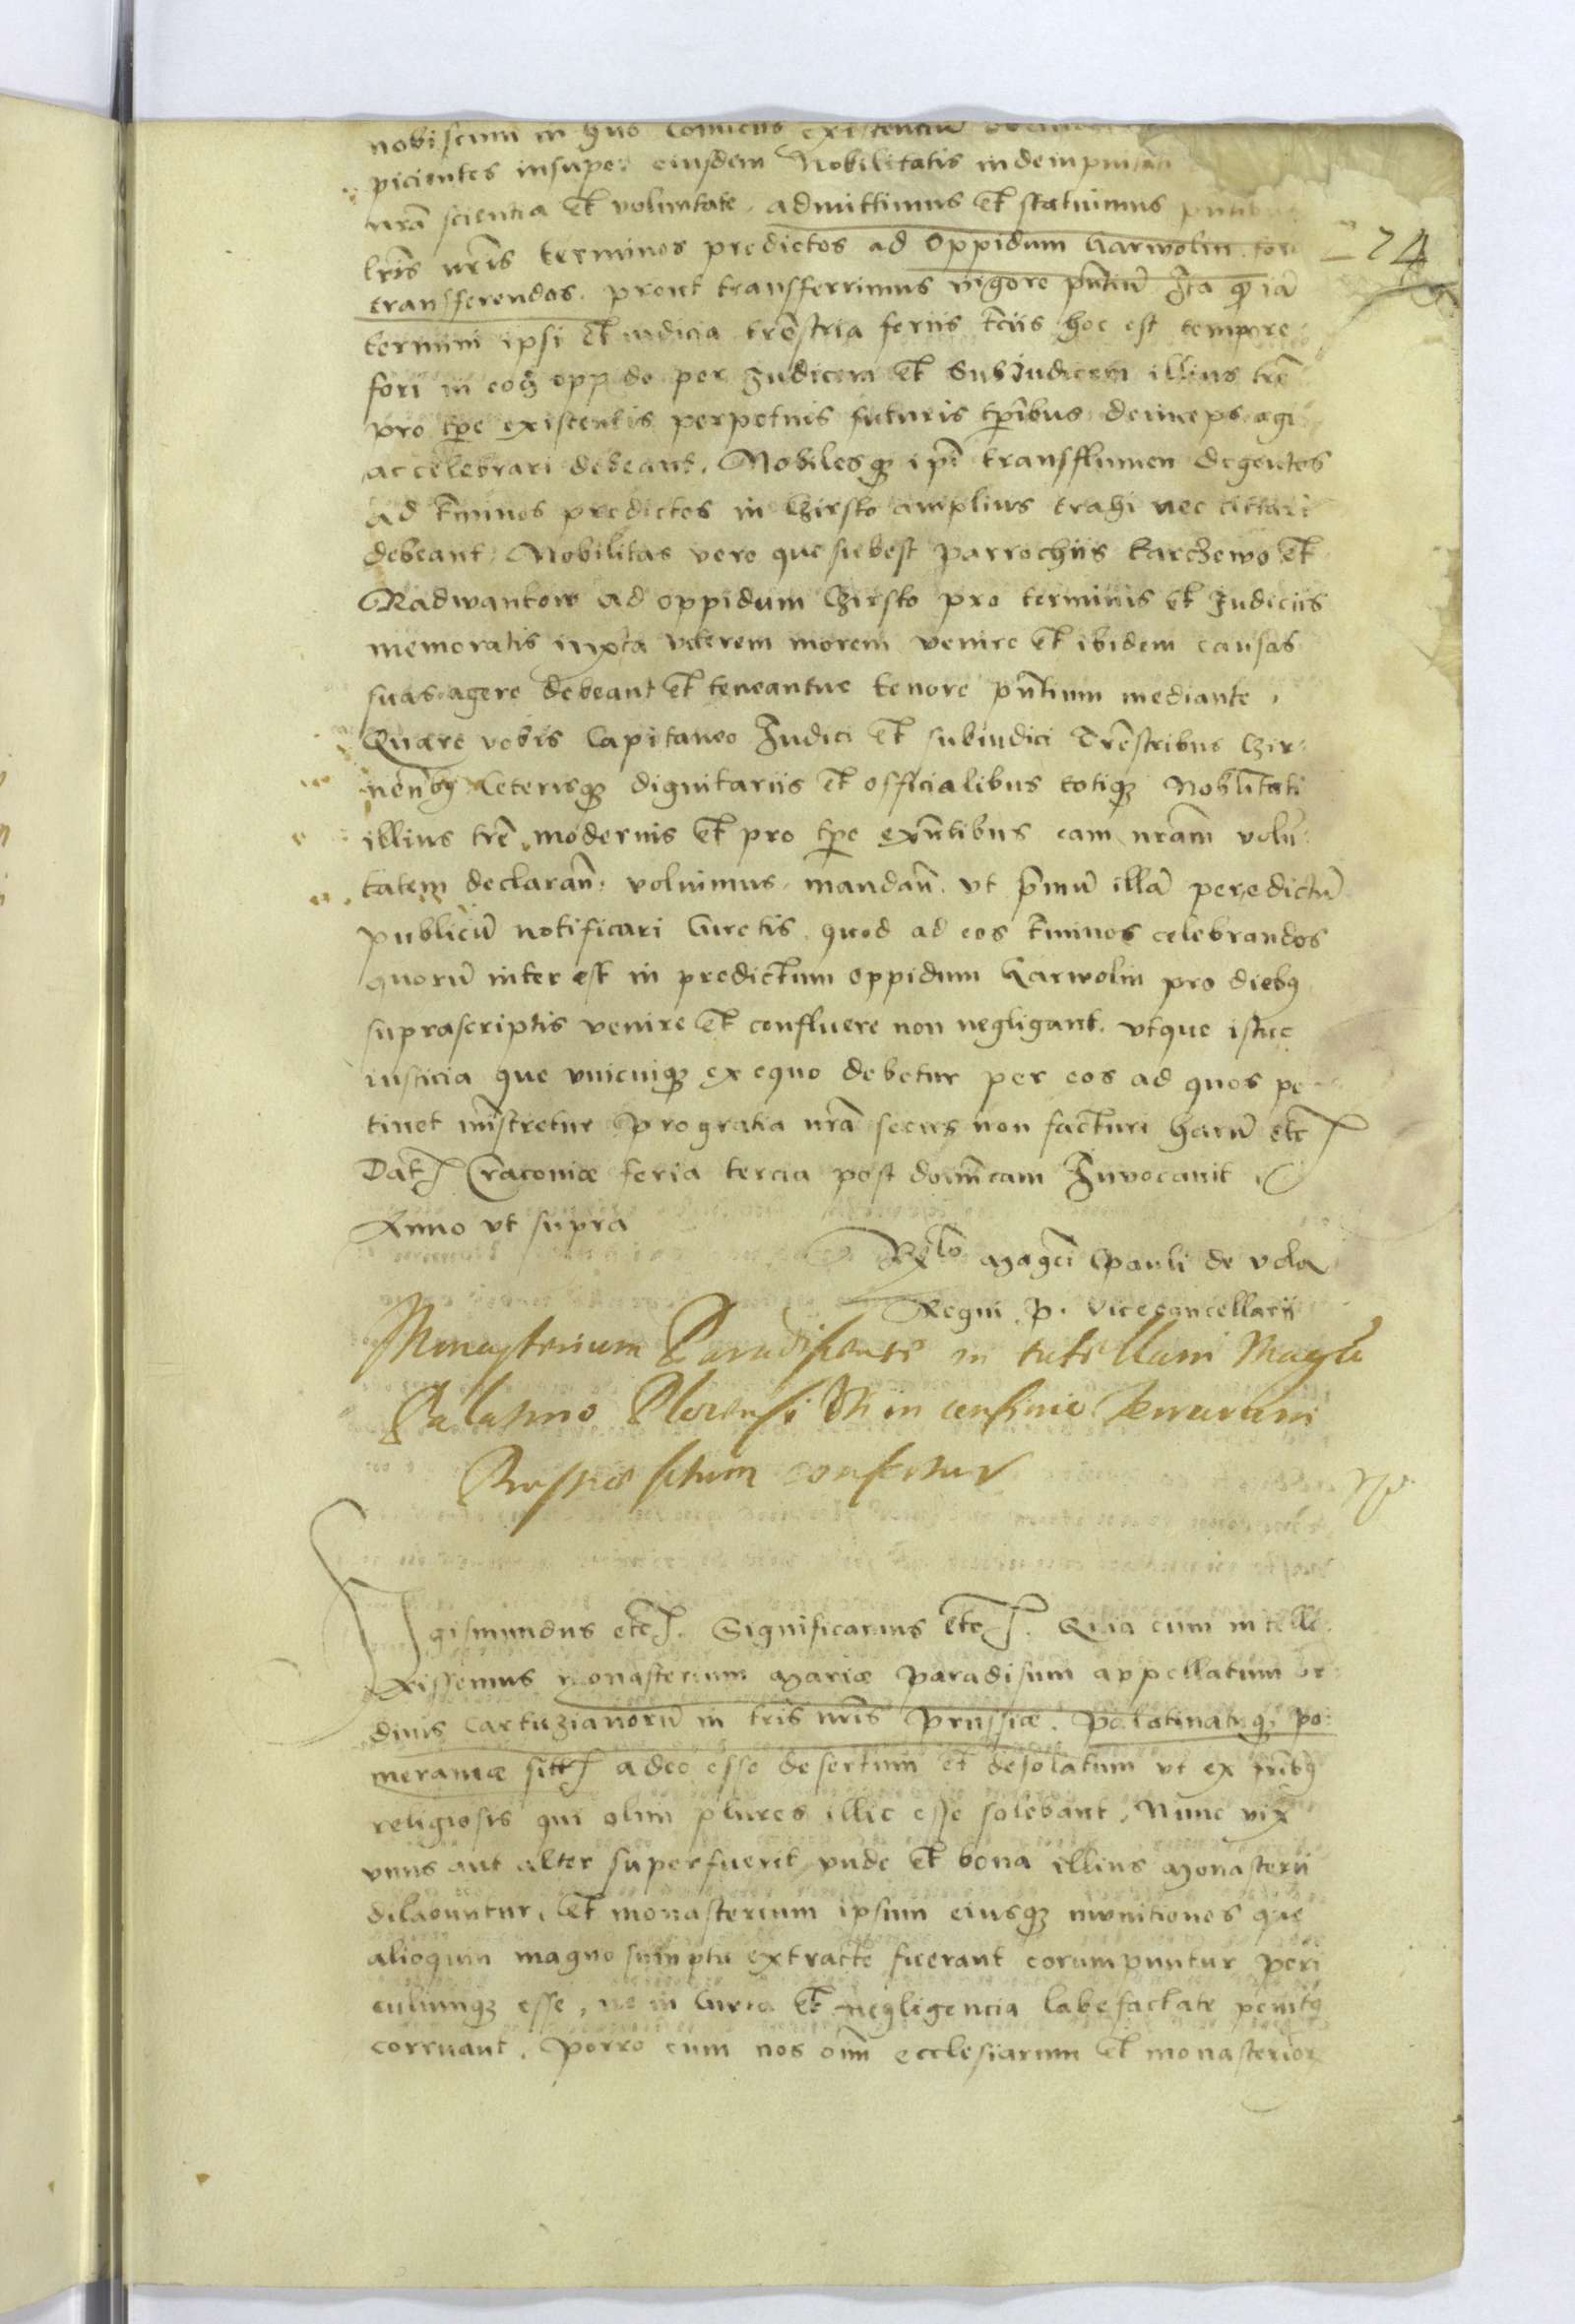 nobiscum in huo conventu existentium
picientes insuper eiusdem Nobilitatis indempnitati
nrā scientia et voluntate, admittimus et statuimus pntibus
lrīs nrīs terminos predictos ad oppidum Garwolin fore
transferendos. prout transferrimus vigore pntiū Ita qd iā
termini ipsi et iudicia trēstria feriis tciis hoc est tempore
fori in eod oppido per Iudicem et SubIudicem illius trē
pro tpe existentis perpetuis futuris tpībus deinceps agi
ac celebrari debeant. Nobilesq ipi transflumen degentes
ad tminos predictos in Czirsko amplius trahi nec cittari
debeant, Nobilitas vero que subest parrochiis Karczewo et
Radwankow ad oppidum Czirsko pro terminis et Iudiciis
memoratis iuxta veterem morem venire et ibidem causas
suas agere debeant et teneantur tenore pntium mediante.
Quare vobis Capitaneo Iudici et subiudici Trēstribus Czir-
nenbq Ceterisq dignitariis et officialibus totiq Nobilitati
illius trē, modernis et pro tpe exntibus eam nram volū
tatem declaran. volumus, mandan. vt pmū illā per edictū
publicū notificari Curetis, quod ad eos tminos celebrandos
quorū interest in predictum oppidum Garwolin pro diebq
suprascriptis venire et confluere non negligant. vtque istuc
iusticia que vnicuiq ex equo debetur per eos ad quos pe
tinet mīstretur pro gratia nrā secus non facturi harū etc
Dat Cracoviæ feria tercia post domīcam Invocavit
Anno vt supra
Relo Magci Pauli de vola
Regni P. Vicecancellarii
Monasterium Paradisensi in tutellam Magco
Palatino Plocensi in confinio terrarum
Prussiæ situm confertur
gismundus etc. Significamus etc. Quia cum intelle
xissemus monasterium Mariæ paradisum appellatum or
dinis Cartuzianorū in tris nris Prussiæ. Palatinatuq po:
meraniæ sitt adeo esse desertum et desolatum vt ex frībq
religiosis qui olim plures illic esse solebant, Nunc vix
vnus aut alter superfuerit, vnde et bona illius Monasterii
dilabuntur, Et monasterium ipsum eiusq munitiones que
alioquin magno sumptu extracte fuerant corumpuntur peri
culumq esse, ne in Curia et negligencia labefactate penitq
corruant. Porro cum nos oīm ecclesiarum et monasterior
274